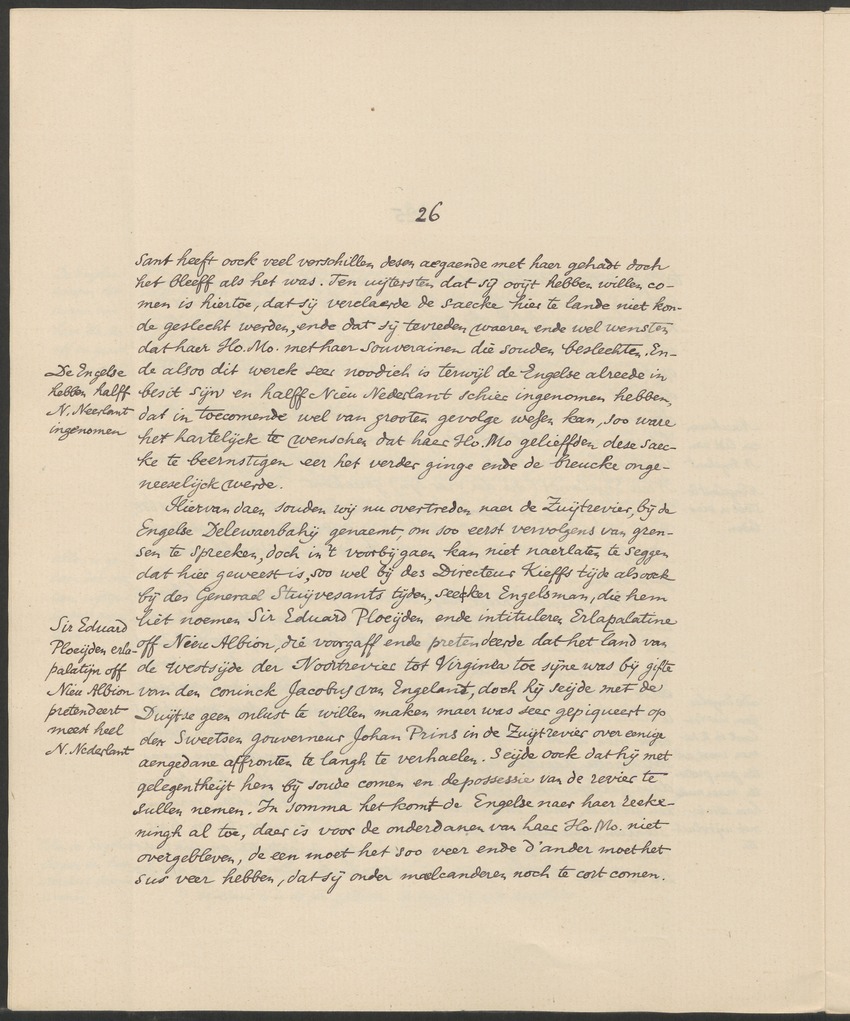 26
sant heeft oock veel verschillen desen aegaende met haer gehadt doch
het bleeff als het was. Ten uijtersten dat sij ooijt hebben willen co-
men is hiertoe, dat sij verclaerde de saecke hier te lande niet kon-
de geslecht werden, ende dat sij tevreden waeren ende wel wensten
dat haer Ho. Mo. met haer souverainen die souden beslechten. En-
de alsoo dit werck seer noodich is terwijl de Engelse alreede in
besit sijn en halff Nieu Nederlant schier ingenomen hebben,
dat in toecomende wel van grooten gevolge wesen kan, soo ware
het hartelijck te wenschen dat haer Ho. Mo gelieffden dese saec-
ke te beernstigen eer het verder ginge ende de breucke onge-
neeselijck werde.
De Engelse
hebben halff
N. Neerlant
ingenomen
Hiervandaen souden wij nu overtreden naer de Zuijtrevier, bij de
Engelse Delewaerbahij genaemt, om soo eerst vervolgens van gren-
sen te spreecken, doch in't voorbijgaen kan niet naerlaten te seggen
dat hier geweest is, soo wel bij des Directeur Kieffs tijde als oock
bij des Generael Stuijvesants tijden, seecker Engelsman, die hem
liet noemen Sir Eduard Ploeijden ende intituleren Erlapalatine
off Nieu Albion, die voorgaff ende pretendeerde dat het land van
de westsijde der Noortrevier tot Virginia toe sijne was bij gifte
van den coninck Jacobus van Engelant, doch hij seijde met de
Duijtse geen onlust te willen maken maer was seer gepiqueert op
den Sweetsen gouverneur Johan Prins in de Zuijtrevier over eenige
aengedane affronten te langh te verhaelen. Seijde oock dat hij met
gelegentheijt hem bij soude comen en de possessie van de revier te
sullen nemen. In somma het komt de Engelse naer haer reeke-
ningh al toe, daer is voor de onderdanen van haer Ho. Mo. niet
overgebleven, de een moet het soo veer ende d'ander moet het
sus veer hebben, dat sij onder malcanderen noch te cort comen.
Sir Eduard
Ploeijden erla-
palatijn off
Nieu Albion
pretendeert
meest heel
N. Nederlant